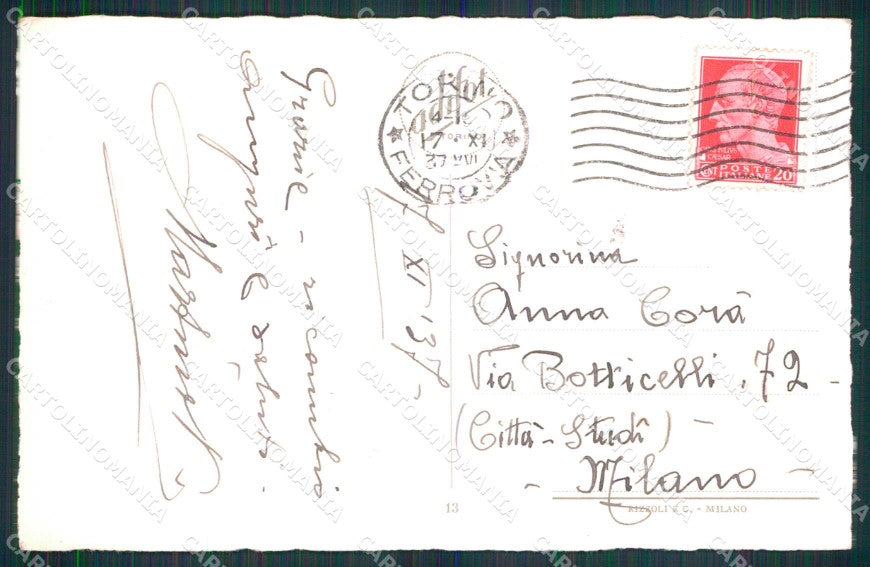 Grazie - ricambio
auguri e saluti.
7 XI '37 -
TORINO
17 · XI
37 XVI
FERROVIA
POSTE
ITALIANE
CENT 20
Signorina
Anna Corà
Via Botticelli. 72 -
(Città - Studî)
- Milano -
13
RIZZOLI & C. - MILANO
CARTOLINOMANIA